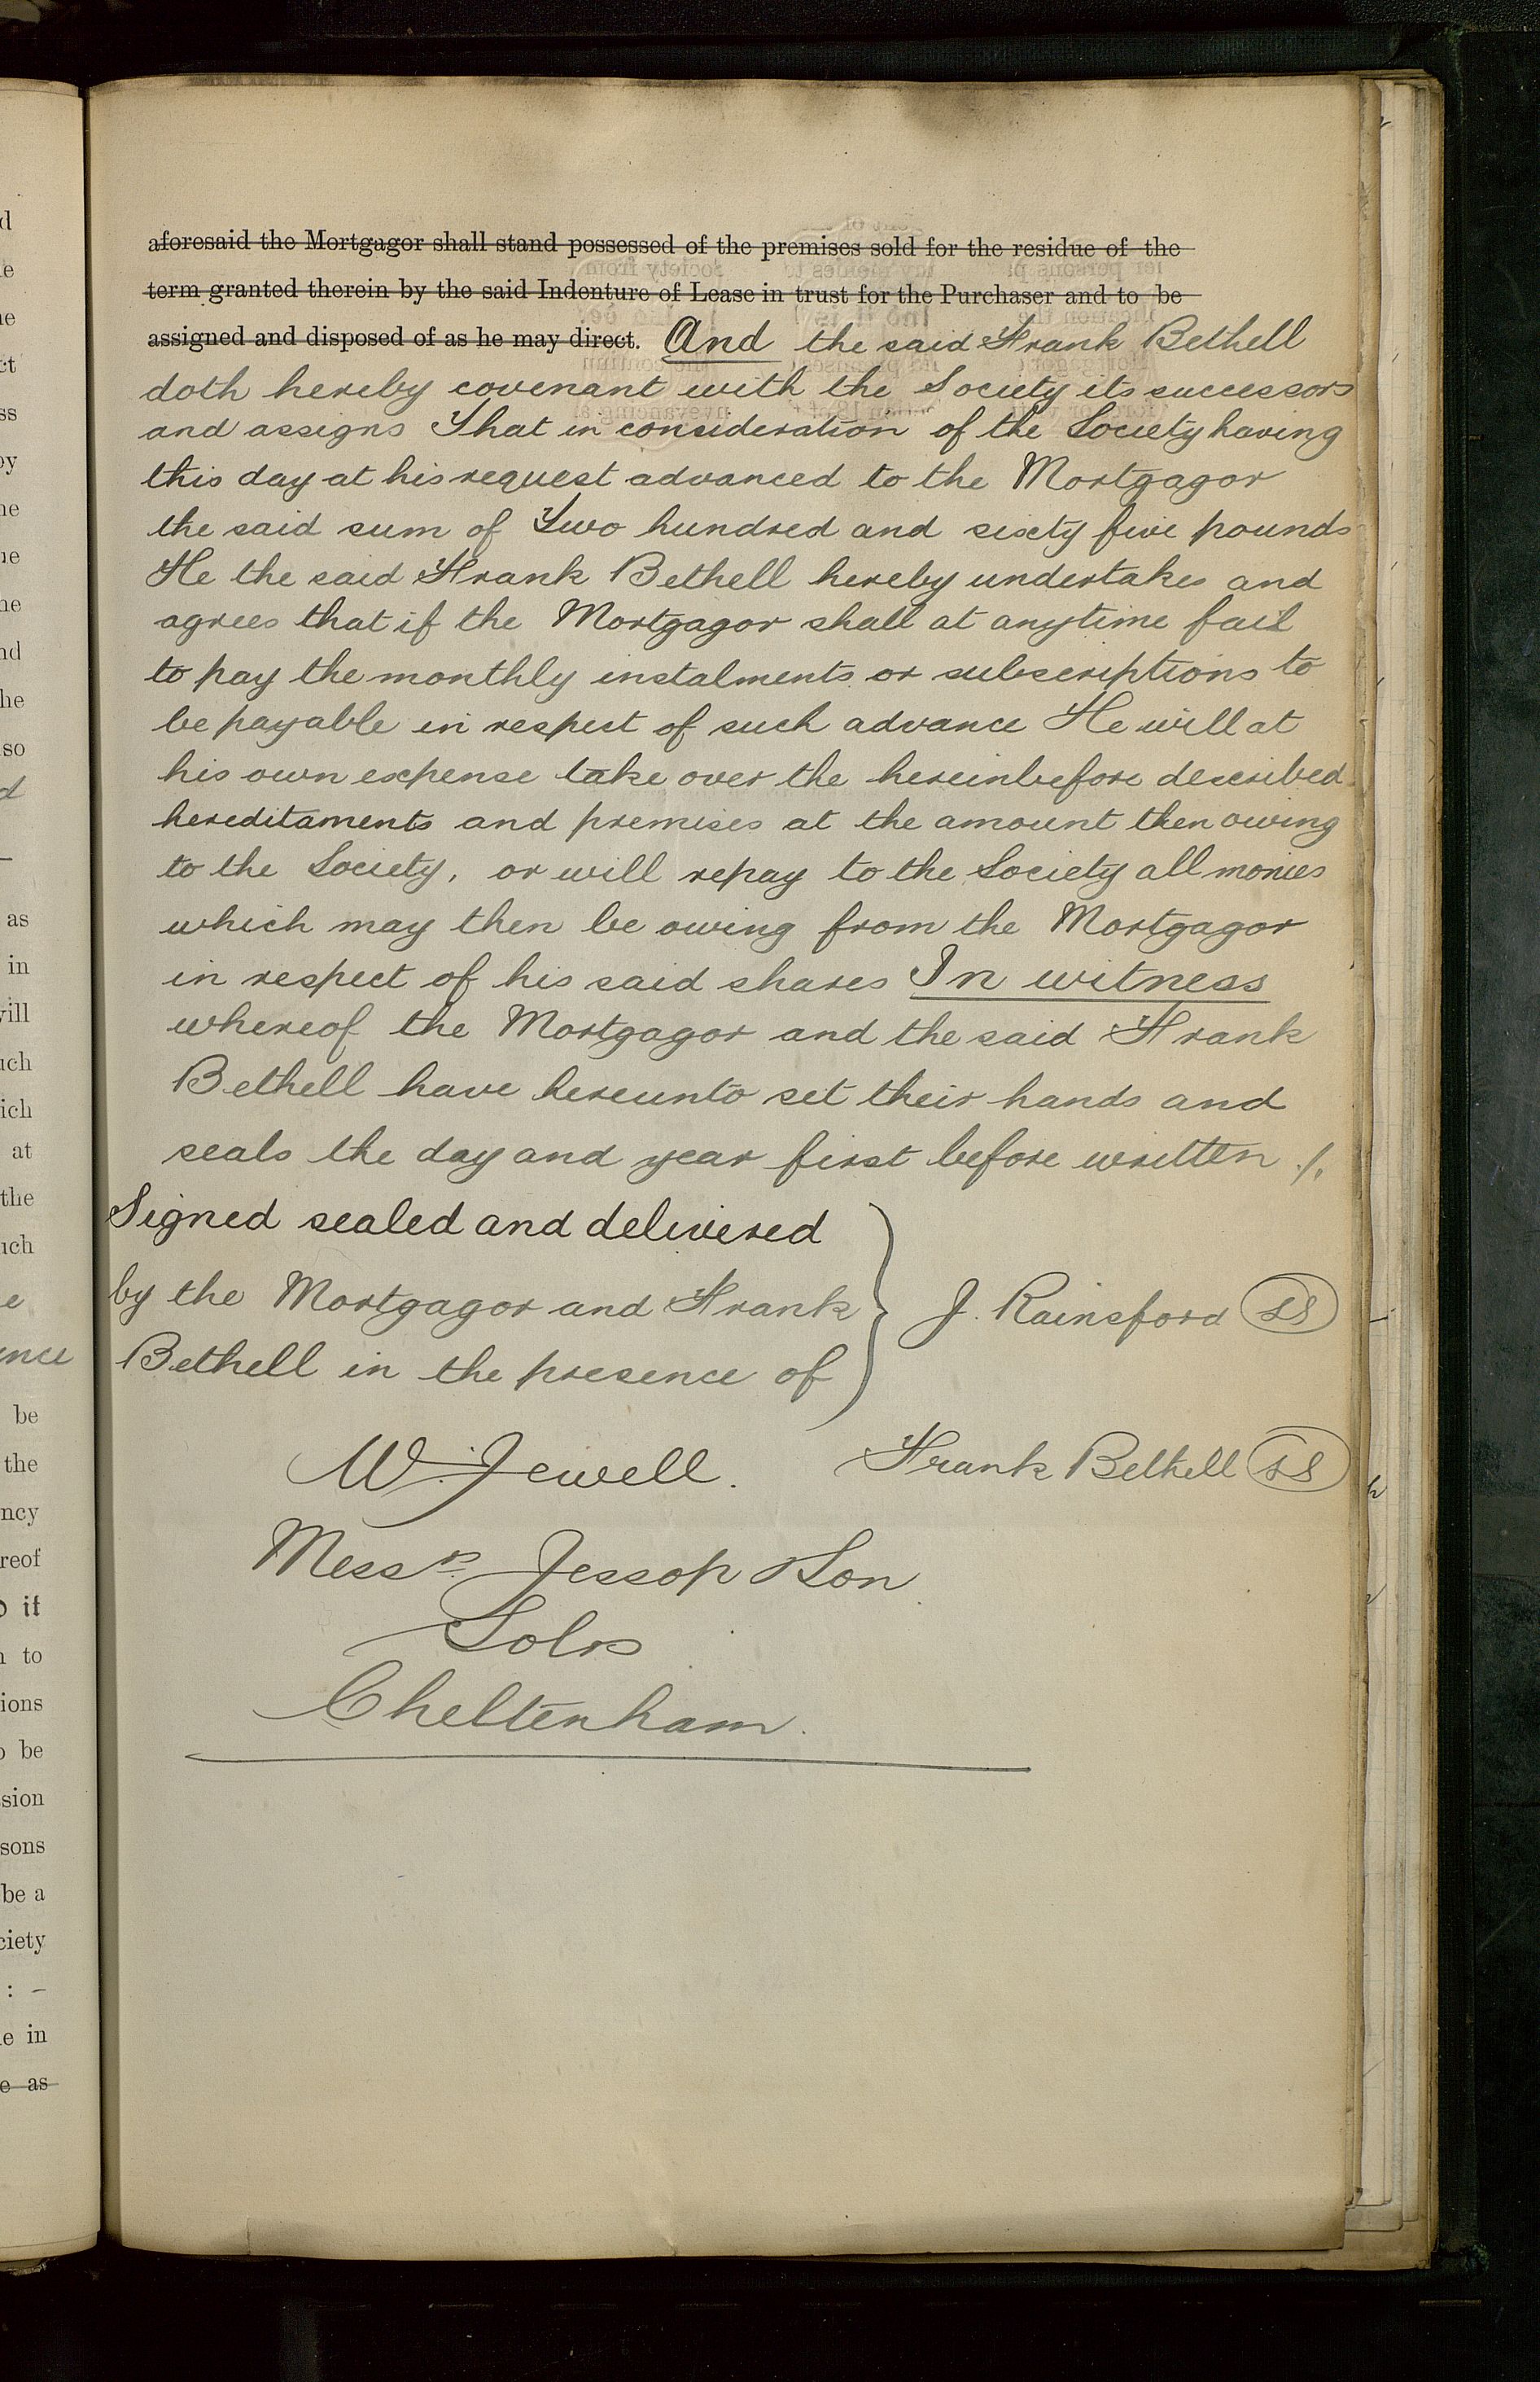 aforesaid the Mortgagor shall stand possessed of the premises sold for the residue of the
term granted therein by the said Indenture of Lease in trust for the Purchaser and to be
assigned and disposed of as he may direct. And the said Frank Bethell
doth hereby covenant with the Society its successors
and assigns That in consideration of the Society having
this day at his request advanced to the Mortgagor
the said sum of Two hundred and sixty five pounds
He the said Frank Bethell hereby undertakes and
agrees that if the Mortgagor shall at anytime fail
to pay the monthly instalments or subscriptions to
be payable in respect of such advance He will at
his own expense take over the hereinbefore described
hereditaments and premises at the amount then owing
to the Society, or will repay to the Society all monies
which may then be owing from the Mortgagor
in respect of his said shares In witness
whereof the Mortgagor and the said Frank
Bethell have hereunto set their hands and
seals the day and year first before written ./.
Signed sealed and delivered
by the Mortgagor and Frank
Bethell in the presence of
J. Rainsford LS
W. Jewell.
Frank Bethell LS
Messrs. Jessop & Son
Solrs
Cheltenham.